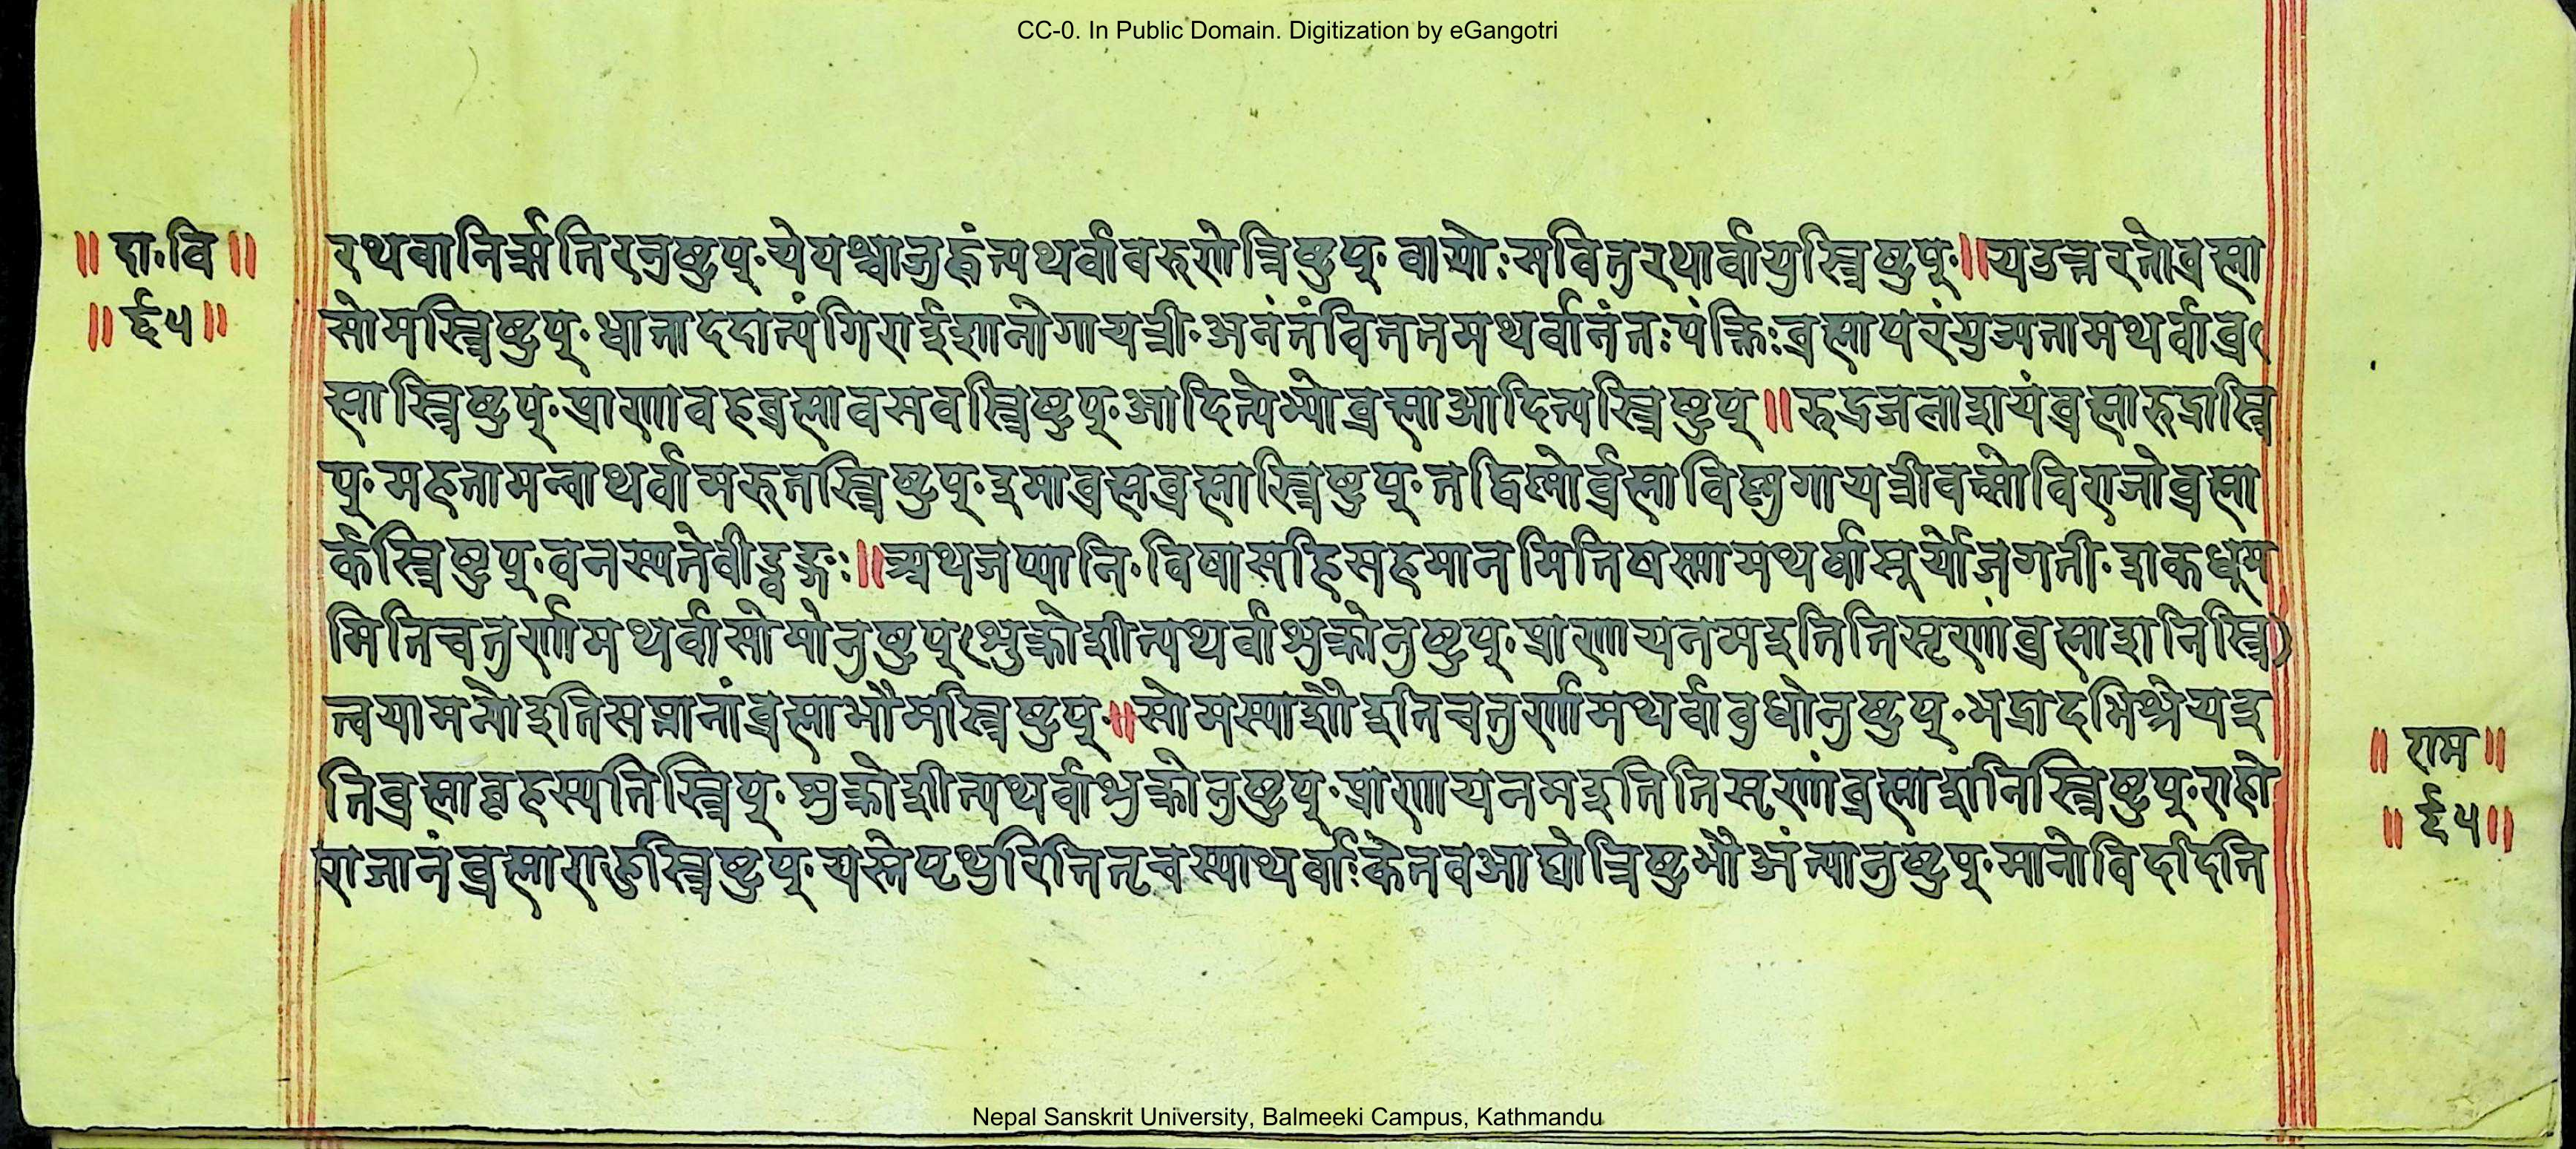 CC-0. In Public Domain. Digitization by eGangotri
॥ दा॰वि ॥
॥ ६५ ॥
रथवानिर्ऋतिरनुष्टुप्॰येपश्चाजुह्वंत्यथर्वावरुणोत्रिष्टुप्॰वायोःसवितुरथार्वायुस्त्रिष्टुप्॰॥यउत्तरतोब्रह्मा
सोमस्त्रिष्टुप्॰धाताददात्यंगिराईशानोगायत्री॰अनंतंविततमथर्वानंतःपंक्तिःब्रह्मापरंयुज्यतामथर्वाब्र
ह्मास्त्रिष्टुप्॰प्राणावहब्रह्मावसवस्त्रिष्टुप्॰आदित्येभ्योब्रह्माआदित्यस्त्रिष्टुप्॥रुद्रजलाशयंब्रह्मारुद्रास्त्रि
प्॰महतामन्वाथर्वामरुतस्त्रिष्टुप्॰इमाब्रह्मब्रह्मास्त्रिष्टुप्॰तद्विष्णोर्ब्रह्माविष्णुगायत्रीवत्सोविराजोब्रह्मा
र्कस्त्रिष्टुप्॰वनस्पतेवीड्वङ्गः॥अथजप्यानि॰विषासहिसहमानमितिषस्मामथर्वासूर्योजगती॰शकधूम
मितिचतुर्णामथर्वासोमोनुष्टुप्शुक्रोशीत्यथर्वाशुक्रोनुष्टुप्॰प्राणायनमइतितिसृणांब्रह्माशनिस्त्रि
त्वयामन्योइतिसप्तानांब्रह्माभौमस्त्रिष्टुप्॰॥सोमस्याशोइतिचतुर्णामथर्वाबुधोनुष्टुप्॰भद्रादभिश्रेयइ
तिब्रह्माबृहस्पतिस्त्रिप्॰शुक्रोशीत्यथर्वाशुक्रोनुष्टुप्॰प्राणायनमइतितिसृणांब्रह्माशनिस्त्रिष्टुप्॰राहो
राजानंब्रह्माराहुस्त्रिष्टुप्॰यस्तेपृथुरितितृचस्याथर्वाःकेतवआद्योत्रिष्टुभौअंत्यानुष्टुप्॰मानोविदीदति
॥ राम ॥
॥ ६५ ॥
Nepal Sanskrit University, Balmeeki Campus, Kathmandu